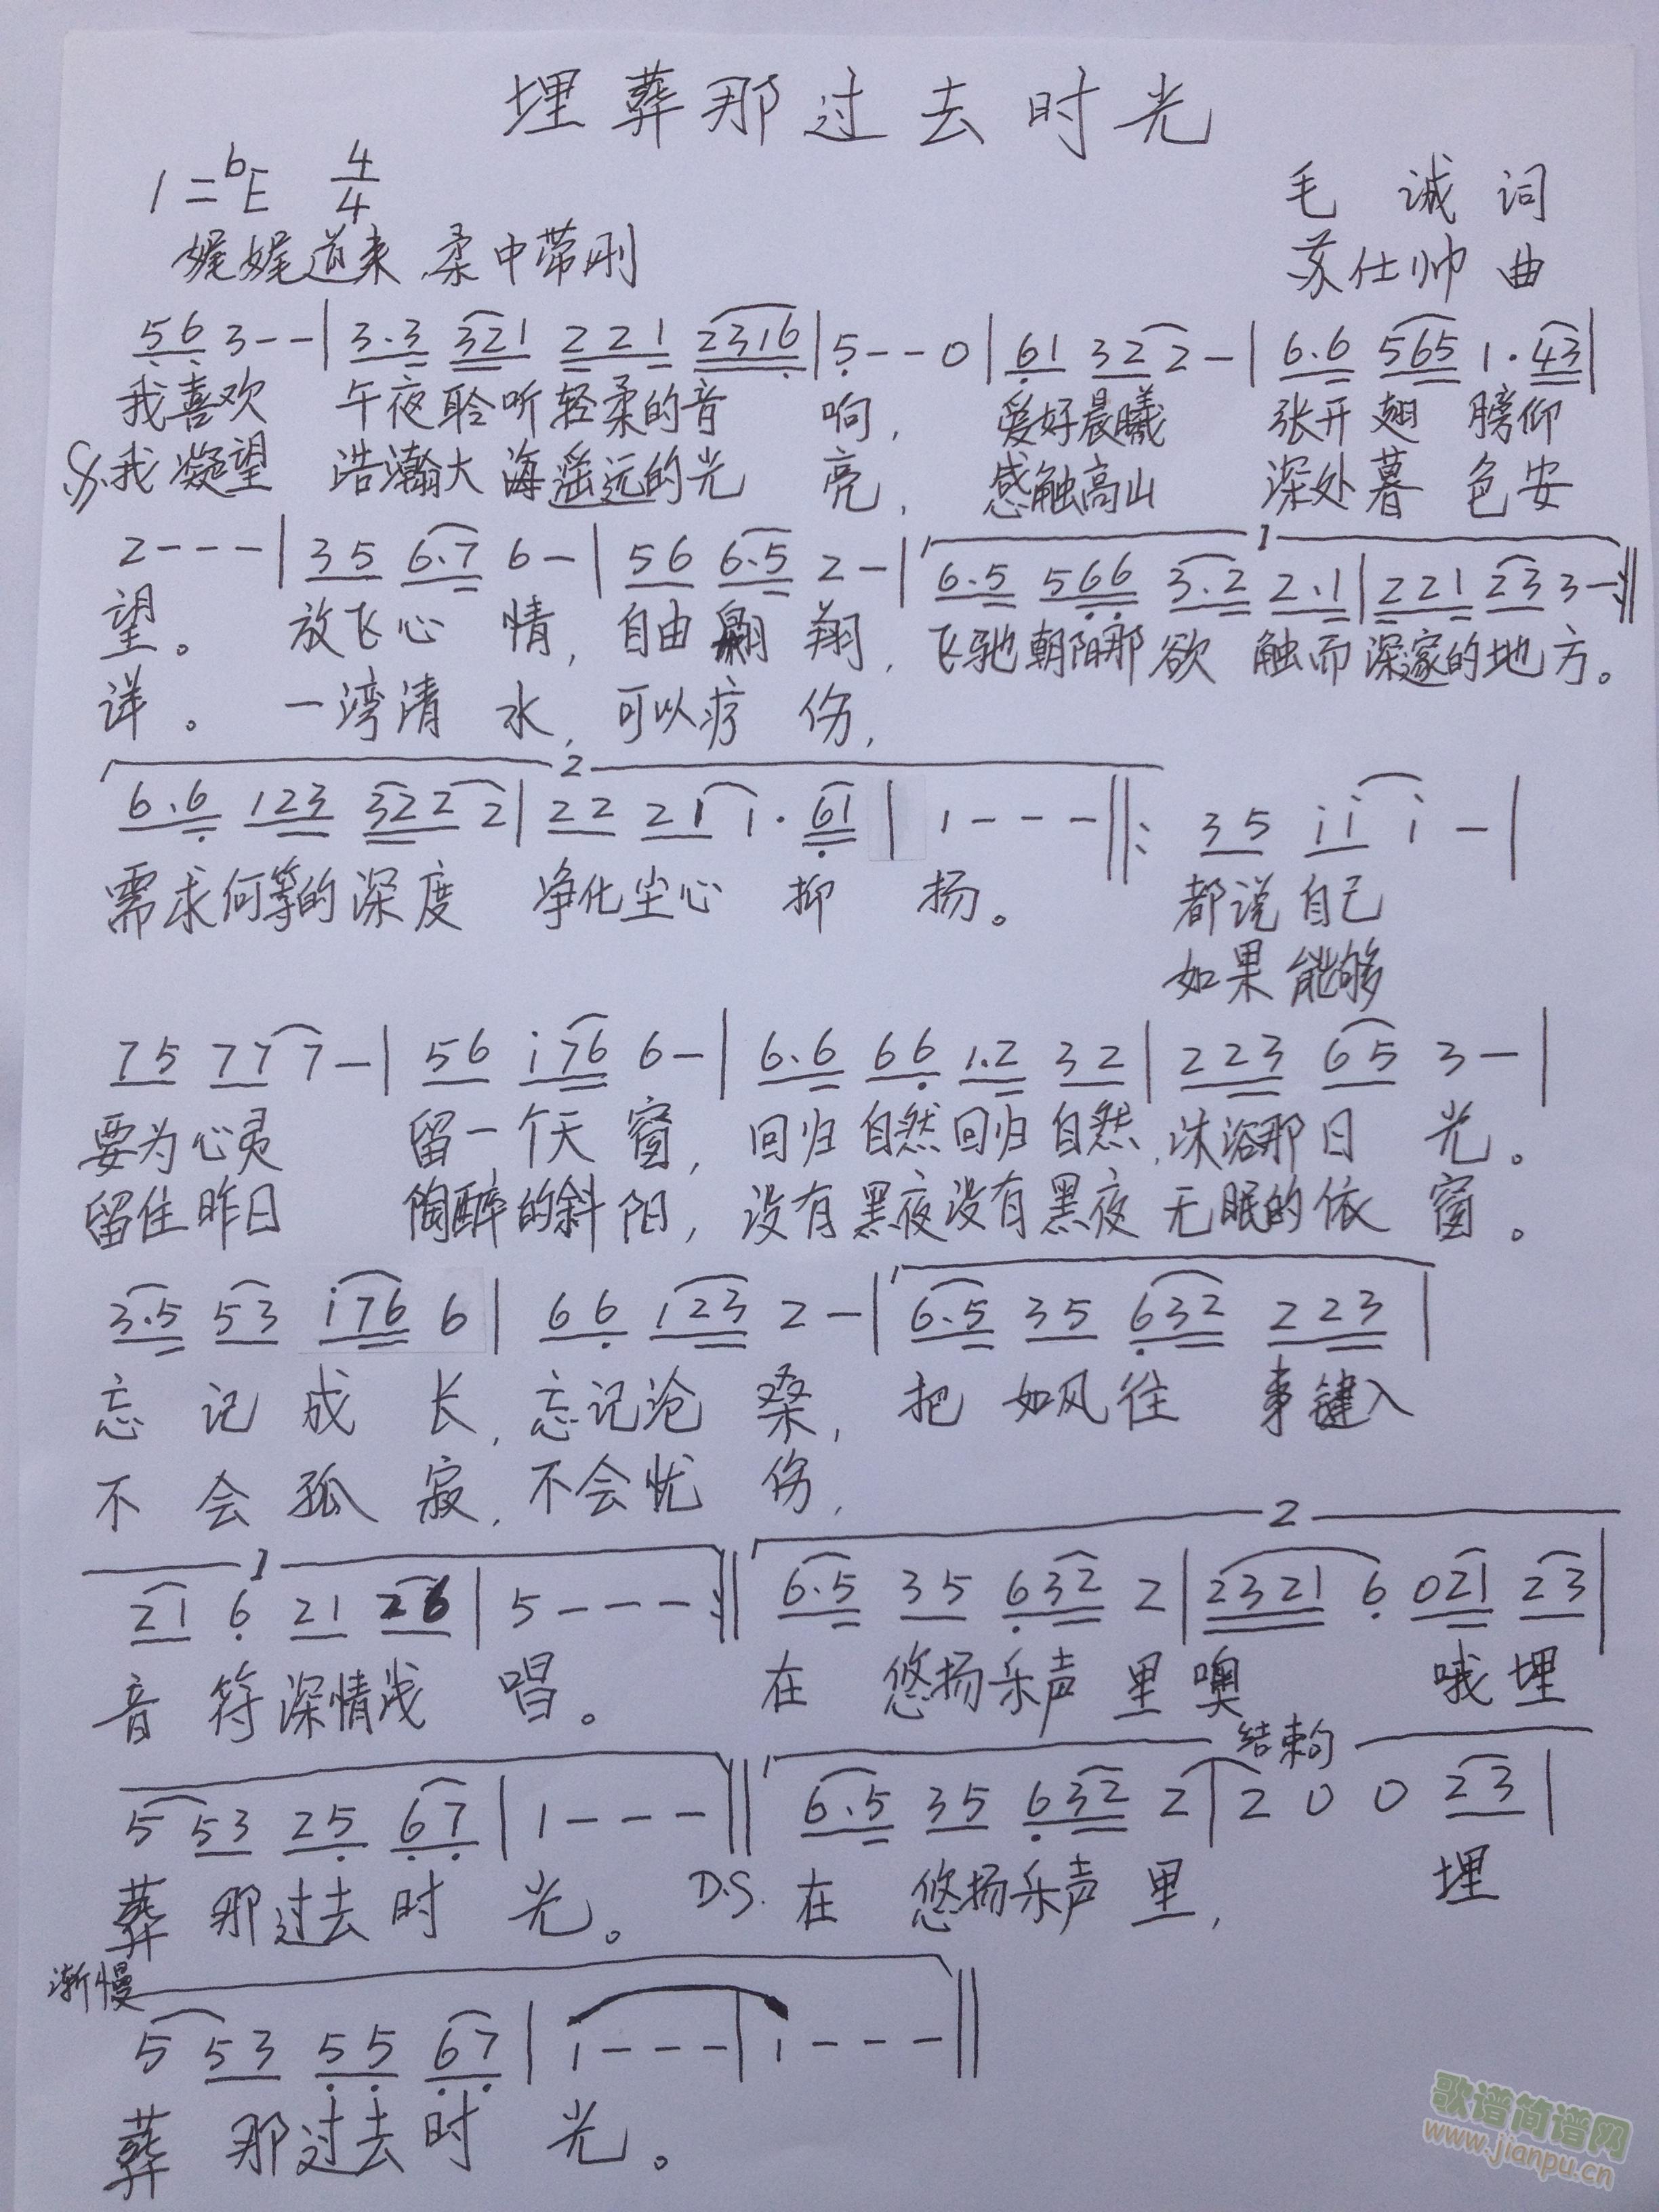 埋葬那过去时光
1=bE 4/4
毛 诚 词
娓娓道来,柔中带刚
苏仕帅 曲
56 3--|3.3 321 221 2316|5--0|61 32 2-|6.6 565 1.43|
我喜欢 午夜聆听轻柔的音 响, 爱好晨曦 张开翅 膀仰
我凝望 浩瀚大海遥远的光 亮, 感触高山 深处暮 色安
2---|35 6.7 6-|56 6.5 2-|6.5 566 3.2 2.1|221 23 3-:||
1
望。 放飞心 情,自由翱 翔,飞驰朝阳那欲 触而深邃的地方。
详。 一湾清 水,可以疗 伤,
2
6.6 123 322 2|22 21 1.61|1---||: 35 ii i-|
需求何等的深度 净化尘心 抑 扬。 都说自己
如果能够
75 77 7-|56 i76 6-|6.6 66 1.2 32|223 65 3-|
要为心灵 留一个天 窗,回归自然回归自然,沐浴那日 光。
留住昨日 陶醉的斜 阳,没有黑夜没有黑夜 无眠的依 窗。
3.5 53 i76 6|66 123 2-|6.5 35 632 223|
忘 记 成 长,忘记沧 桑, 把 如风往 事键入
不 会 孤 寂,不会忧 伤,
1
2
21 6 21 26|5---:||6.5 35 632 2|2321 6 021 23|
音 符深情浅 唱。 在 悠扬乐声 里噢 哦埋
结束句
5 53 25 67|1---||6.5 35 632 2|2 0 0 23|
葬 那过去 时 光。 D.S. 在 悠扬乐声 里, 埋
渐慢
5 53 55 67|1---|1---||
葬 那过去 时 光。
歌谱简谱网
www.jianpu.cn